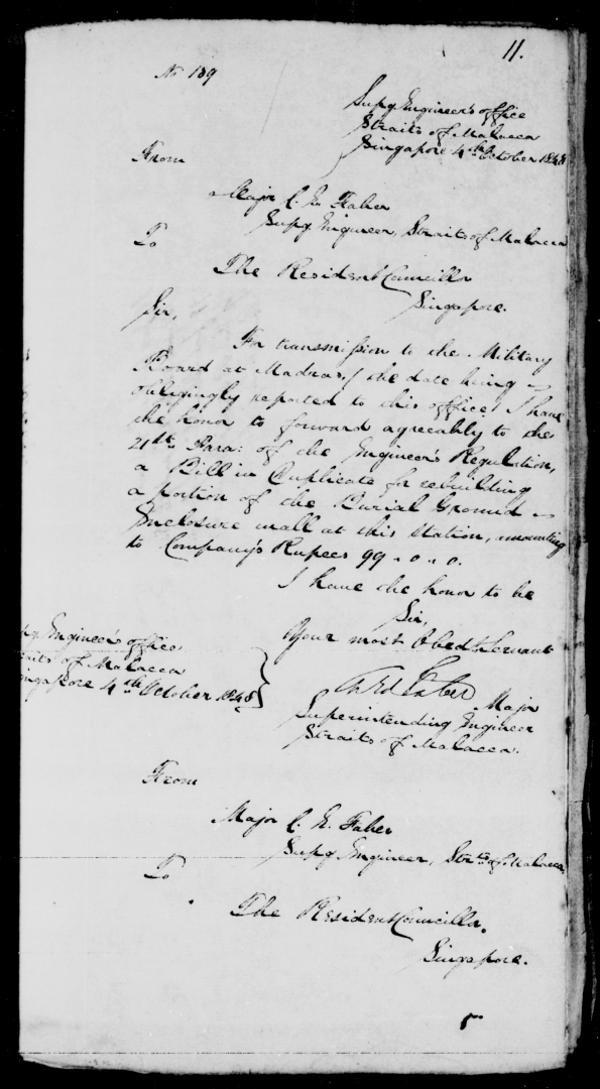 11.
No 189
Supg Engineer's office
Straits of Malacca
Singapore 4th October 1848
From
Major C. E. Faber
Supg Engineer, Straits of Malacca
To
The Resident Councillr
Singapore.
Sir,
For transmission to the Military
Board at Madras, ( the date being
obligingly reported to this office) I have
the honor to forward agreeably to the
21st Para: of the Engineer's Regulation,
a Bill in Duplicate for rebuilding
a portion of the Burial Ground
Enclosure wall at this Station, amounting
to Company's Rupees 99 " 0 " 0.
I have the honor to be
Sir,
Your most Obedt Servant
Faber Major
Superintending Engineer
Straits of Malacca.
Engineer's office
Straits of Malacca
Singapore 4th October 1848
From
Major C. E. Faber
Supg Engineer, Strts of Malacca,
To
The Resident Councillr.
Singapore.